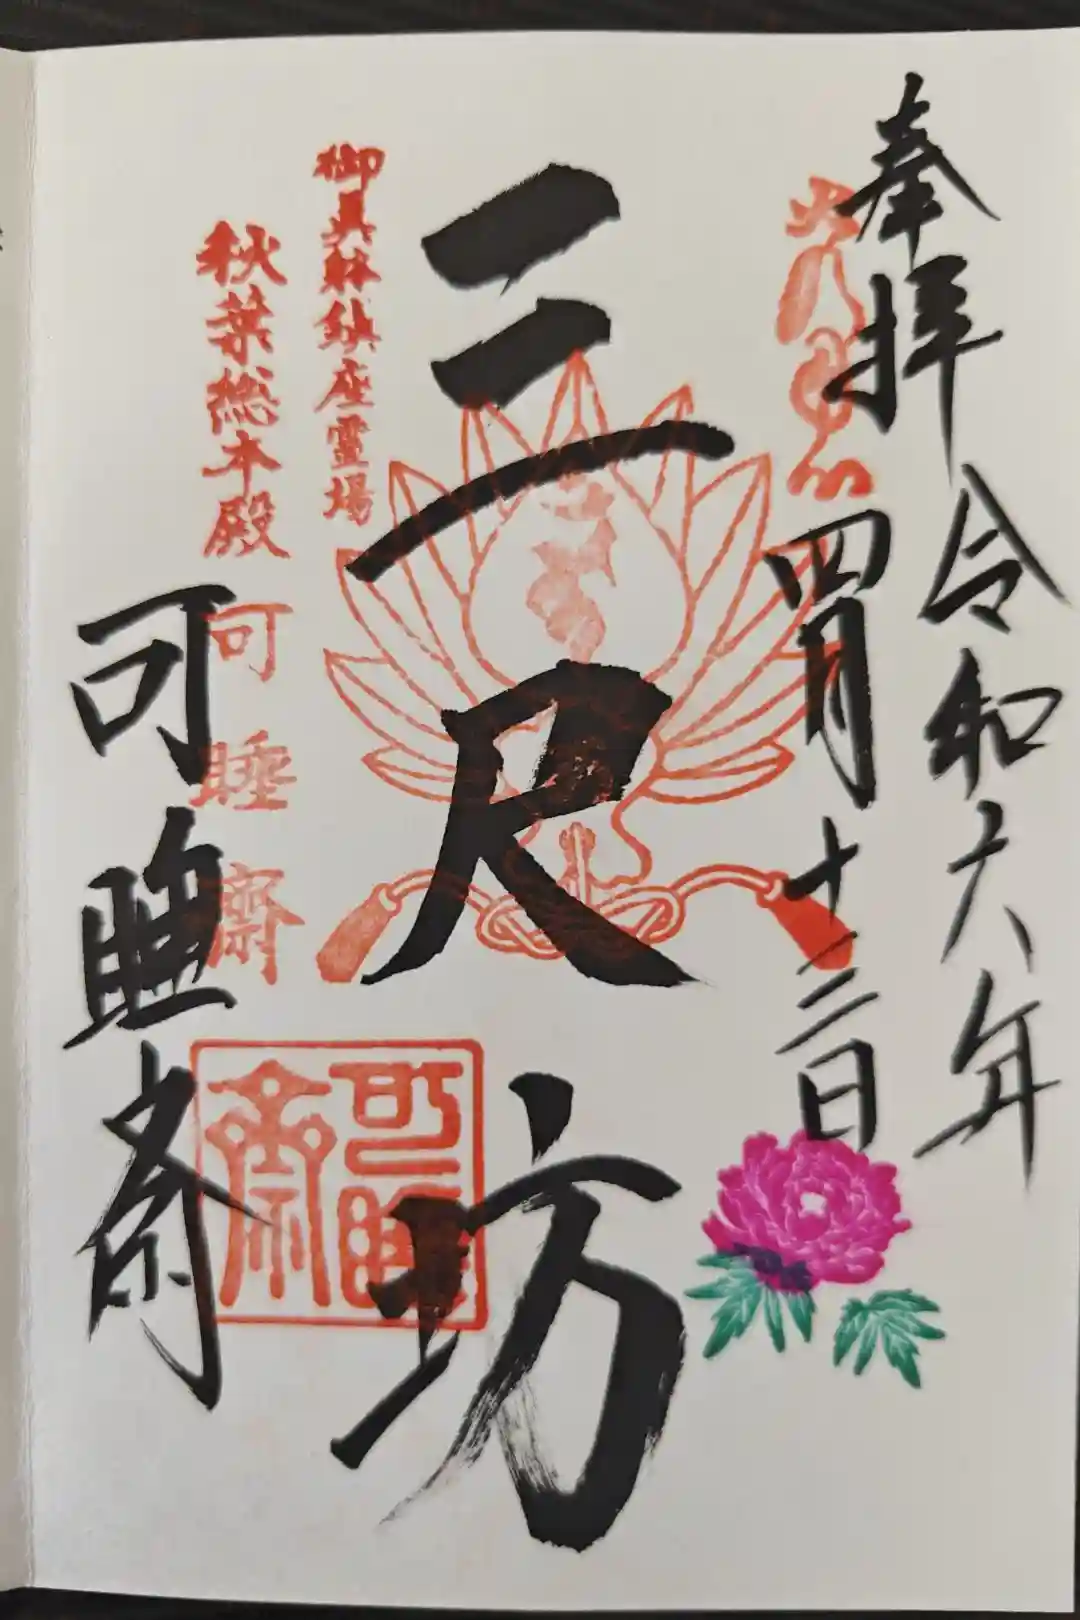 奉拝 令和六年
四月十二日
三尺坊
御真躰鎮座霊場
秋葉総本殿
可睡斎
可睡齋
可睡齋